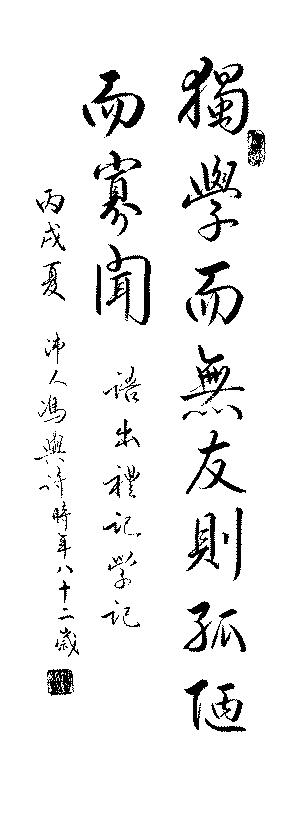 獨學而無友則孤陋
而寡聞
語出禮記學記
丙戌夏 沛人馮興許時年八十二歲